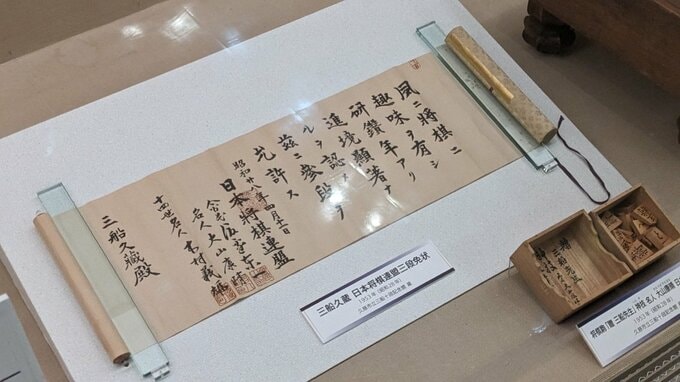 夙ニ将棋ニ
趣味ヲ有シ
研鑽年アリ
進境顕著ナ
ルヲ認メ
茲ニ参段ヲ
允許ス
昭和廿八年
日本将棋連盟
名人大山康晴
十四世名人木村義雄
三船久蔵殿
三船久蔵 日本将棋連盟三段免状
1953年(昭和28年)
久慈市立三船十段記念館 蔵
1953年(昭和28年)